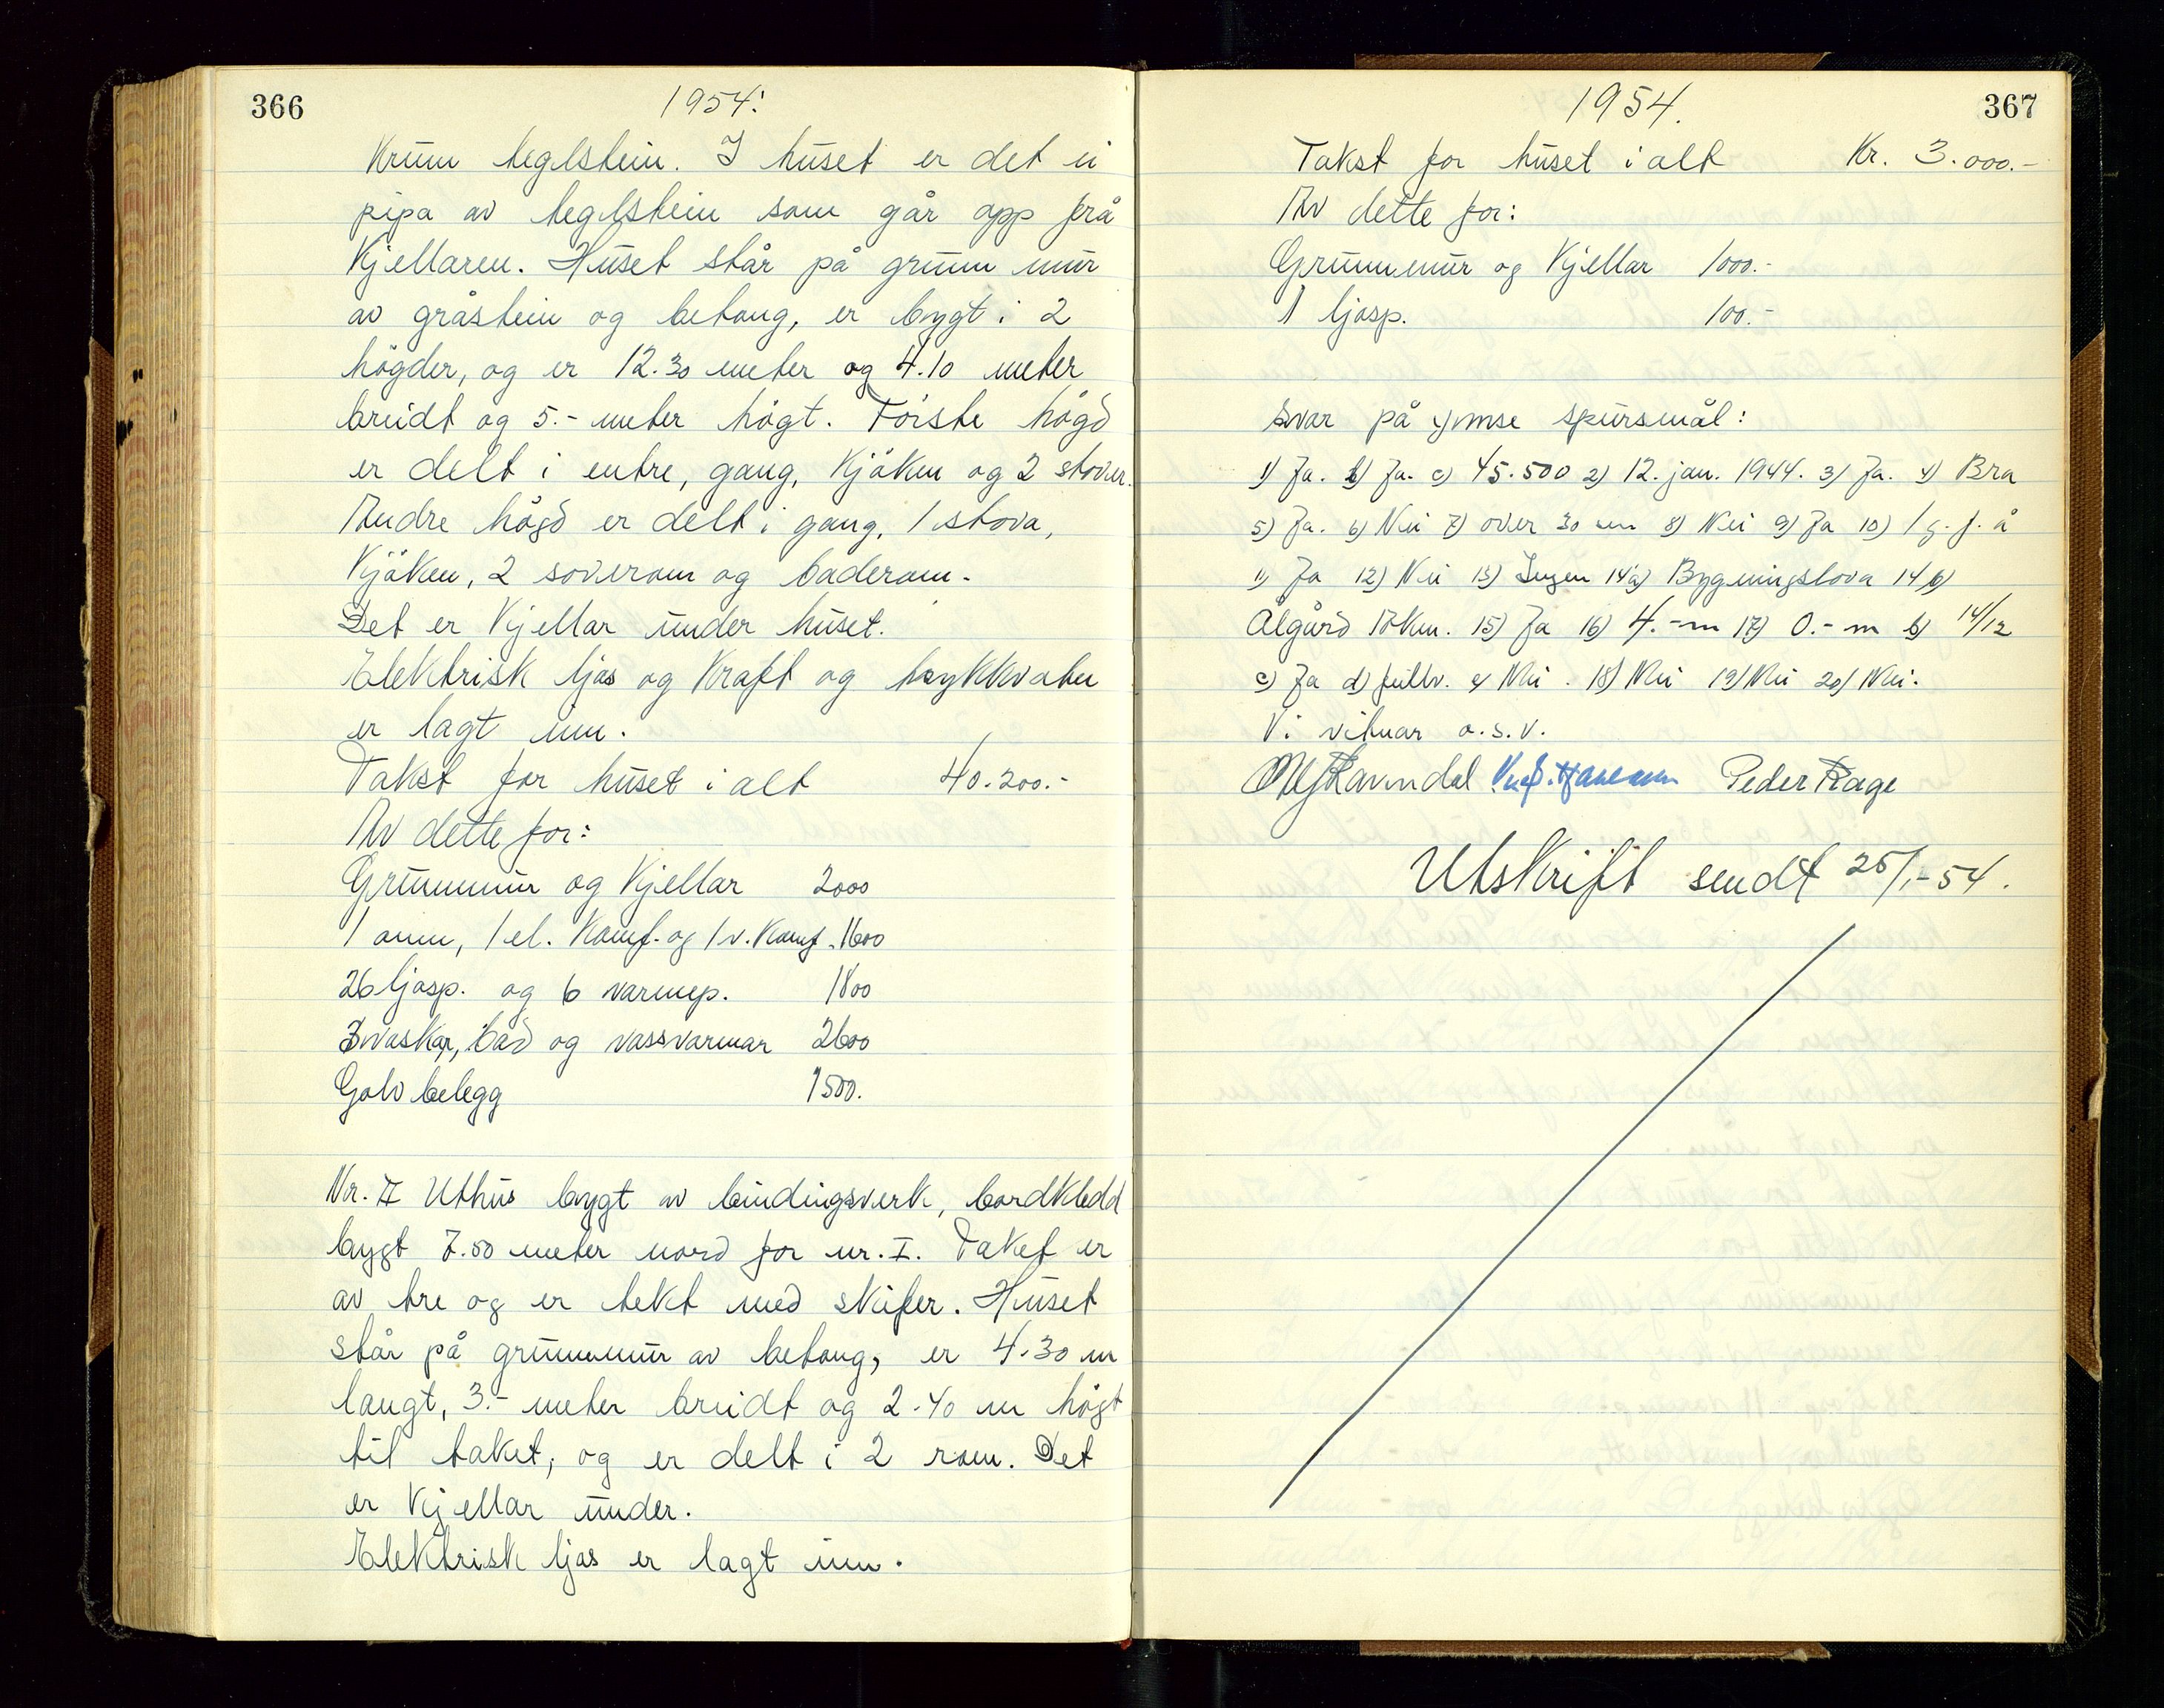 366
1954:
Krum teglstein. I huset er det ei
pipa av teglstein som går opp frå
Kjellaren. Huset står på grunn mur
av gråstein og betong, er bygt i 2
högder, og er 12.30 meter og 4.10 meter
breidt og 5.- meter högt. Förste högd
er delt i entre, gang, Kjöken og 2 stover.
Andre högd er delt i gang, 1 stova,
Kjöken, 2 soverom og baderom.
Det er Kjellar under huset.
Elektrisk ljos og Kraft og trykkvatn
er lagt inn.
Takst for huset i alt 40.200.-
Av dette for:
Grunnmur og Kjellar 2000
1 omn, 1 el. Komf. og 1 v. Komf. 1600
26 ljosp. og 6 varmep. 1800
3 vaskar, bad og vassvarmar 2600
Golvbelegg 1500.
Nr. II Uthus bygt av bindingsverk, bordkledd
bygt 7.50 meter nord for nr. I. Taket er
av tre og er tekt med skifer. Huset
står på grunnmur av betong, er 4.30 m
langt, 3.- meter breidt og 2.40 m högt
til taket, og er delt i 2 rom. Det
er Kjellar under.
Elektrisk ljos er lagt inn.
367
1954.
Takst for huset i alt Kr. 3.000.-
Av dette for:
Grunnmur og Kjellar 1000.-
1 ljosp. 100.-
Svar på ymse spursmål:
1) Ja. b) Ja. c) 45.500 2) 12. jan. 1944. 3) Ja. 4) Bra
5) Ja. 6) Nei 7) over 30 cm 8) Nei 9) Ja 10) 1 g. p. å
11) Ja 12) Nei 13) Ingen 14a) Bygningslova 14 b)
Ålgård 10 km. 15) Ja 16) 4.- m 17) 0.- m b) 14/12
c) Ja d) fullv. e) Nei. 18) Nei 19) Nei 20) Nei.
Vi vitnar o.s.v.
Ravndal Peder Rage
Utskrift sendt 25/1-54.